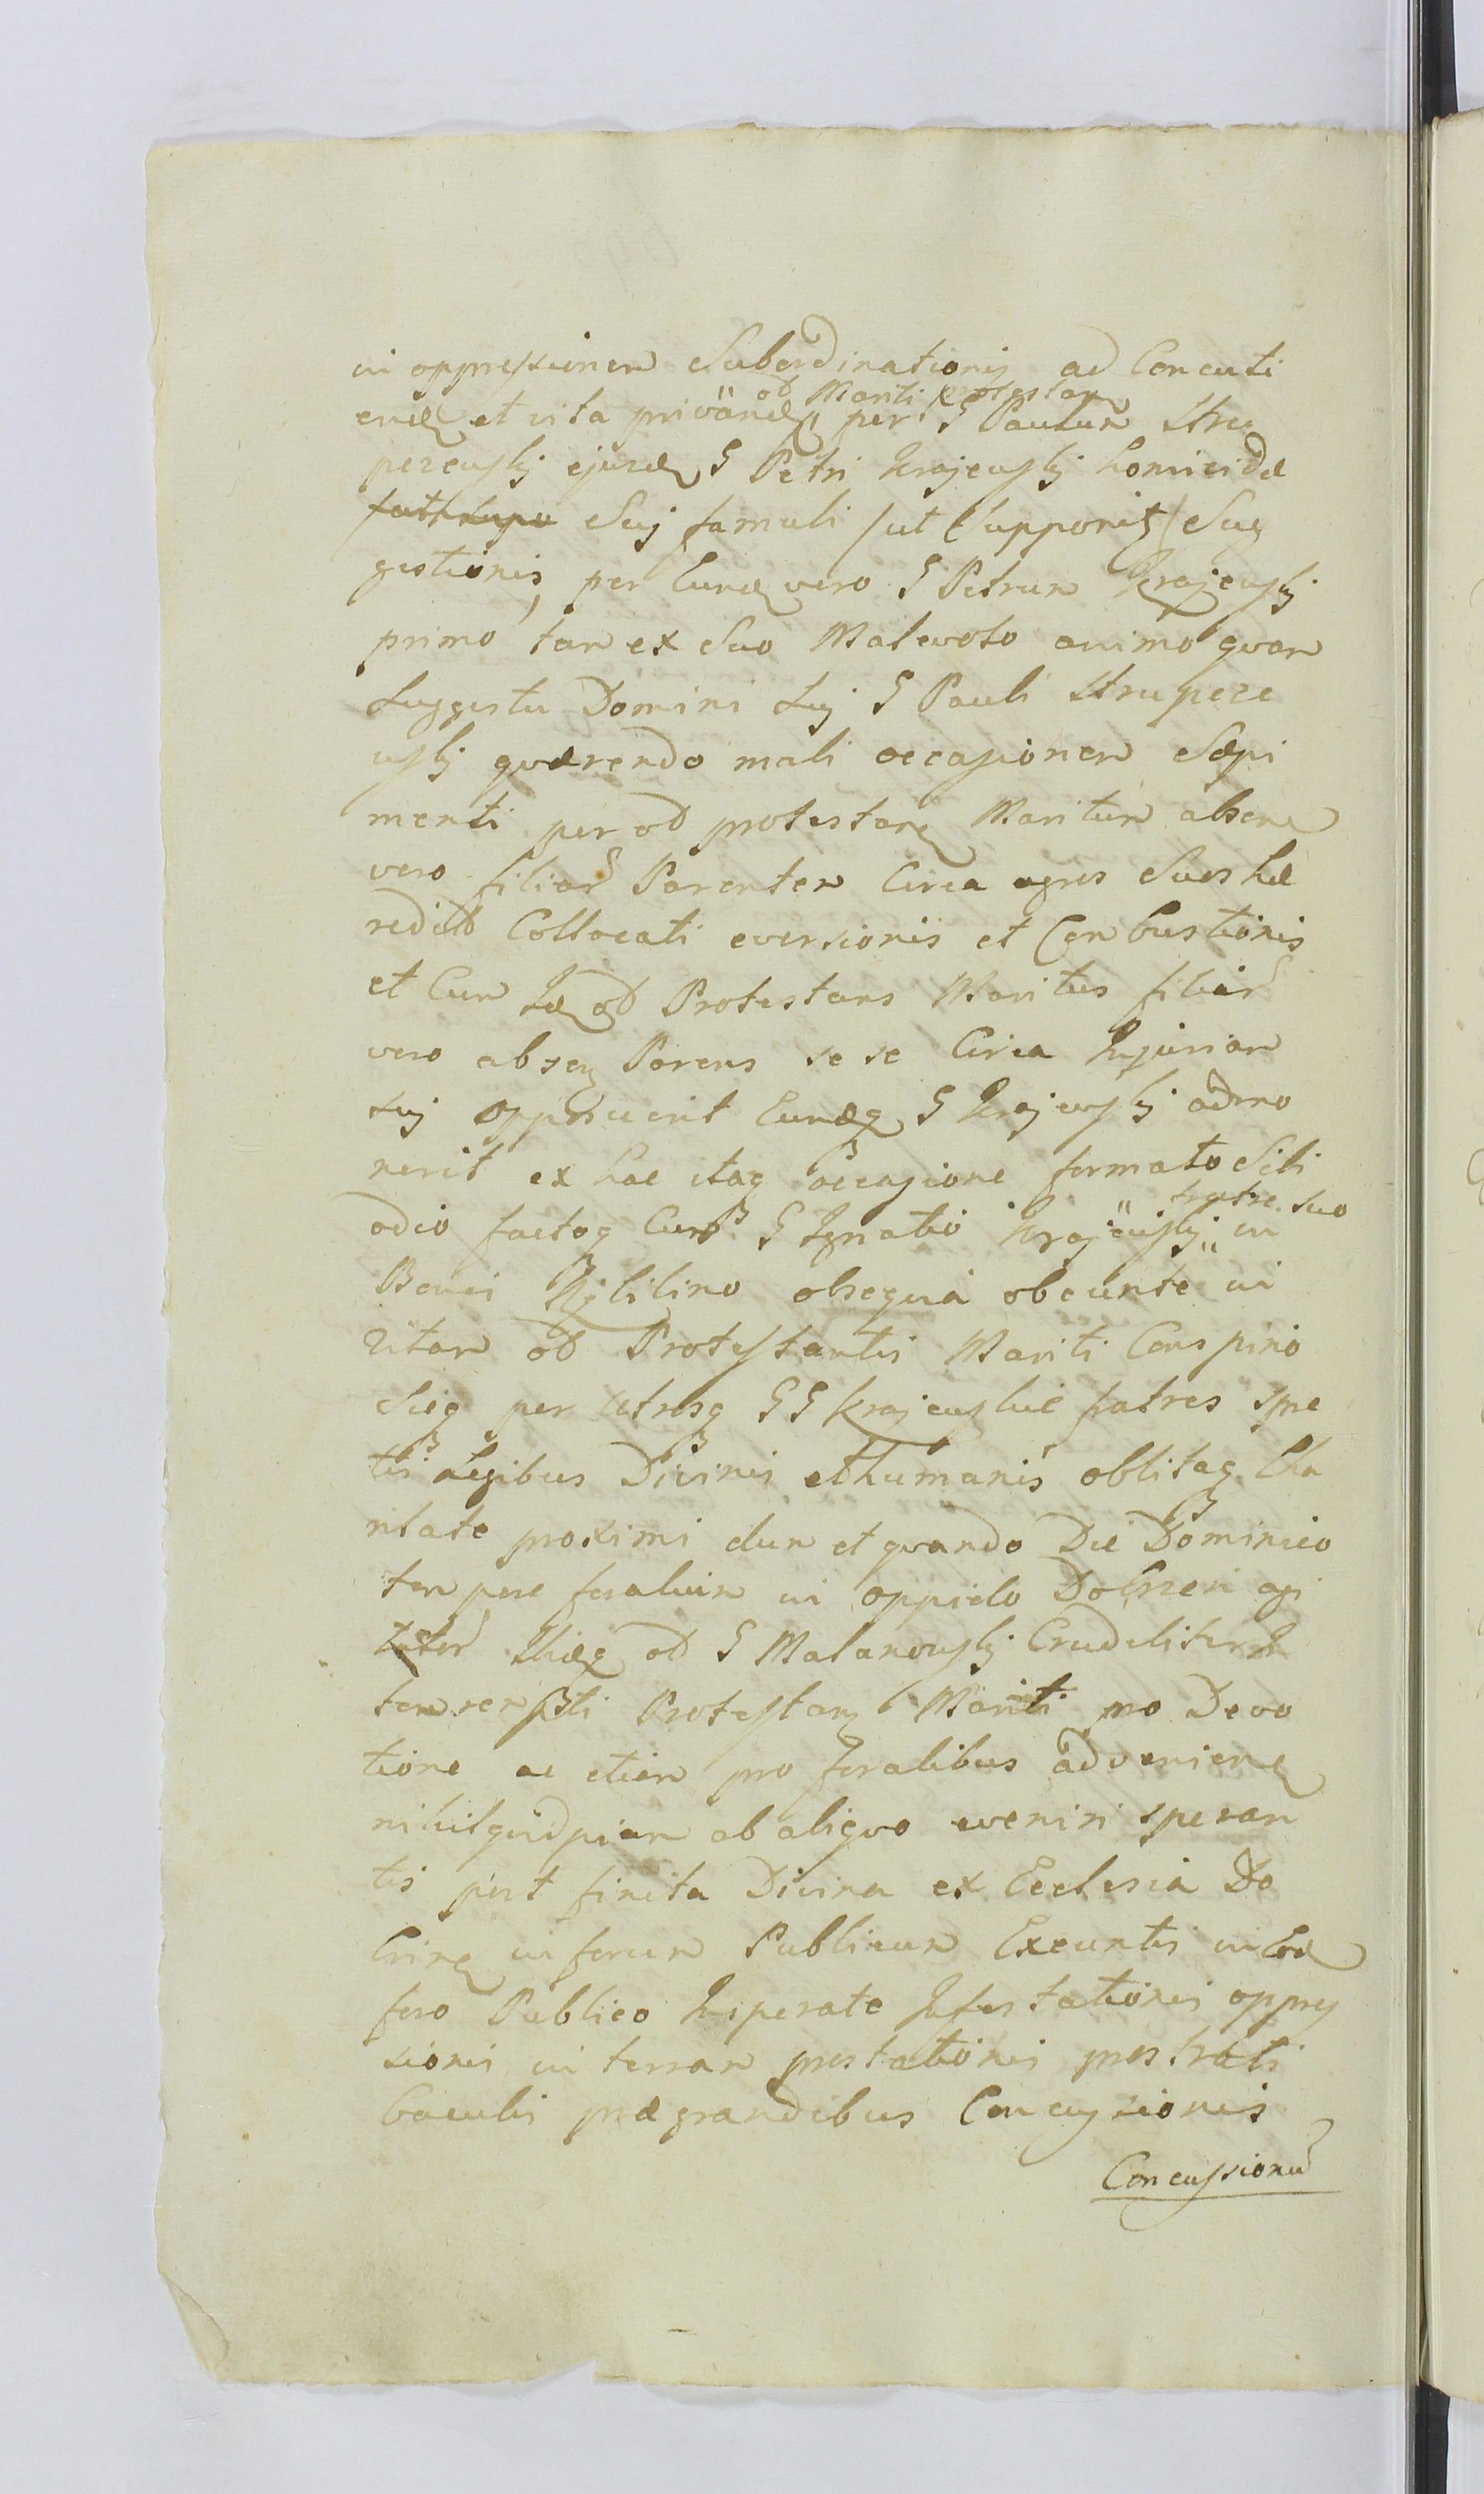 in oppressionem Subordinationis ad Concuti
ob Mariti protestan
end et vita privand per G Paulum Stru
pczewskj ejusd G Petri Krajewskj homicidæ
Suj famuli /ut supponit/ Sug
gestionis, per Eund vero G Petrum Krajewskj
primo tam ex Suo Malevolo animo qvam
Suggestu Domini Suj G Pauli Strupcze
wskj qværendo mali occasionem Sæpi
menti per ob protestan Maritum absen
vero filior Parentem Circa agros Suos hæ
redit Collocati eversionis et Combustionis
et Cum id ob Protestans Maritus filior
vero absen Parens se se Circa Injuriam
suj opposuerit Eundq G Krajewskj admo
nerit ex hac itaq occasione formato Sibi
fratre suo
odio factoq Cum G Ignatio Krajewskj in
Bonis obsequia obeunte in
vitam ob Protestantis Mariti Conspiro
Sicq per utrosq GG Krajewskie fratres spre
tis Legibus Divinis et humanis oblitaq Cha
ritate proximi dum et qvando Die Dominico
tempore foralium in oppido Dobrzeń agi
Ibidq ob G Malanowskj Crudeliter In
teremti Protestan Mariti pro Devo
tione ac etiam pro foralibus advenien
nihil qvidpiam ab aliqvo eveniri speran
tis post finita Divina ex Ecclesia Do
brin in forum Publicum Exeuntis in Eod
foro Publico Insperate Infestationis oppres
sionis in terram prostrationis prostrati
baculis prægrandibus Concussionis
Concussionis